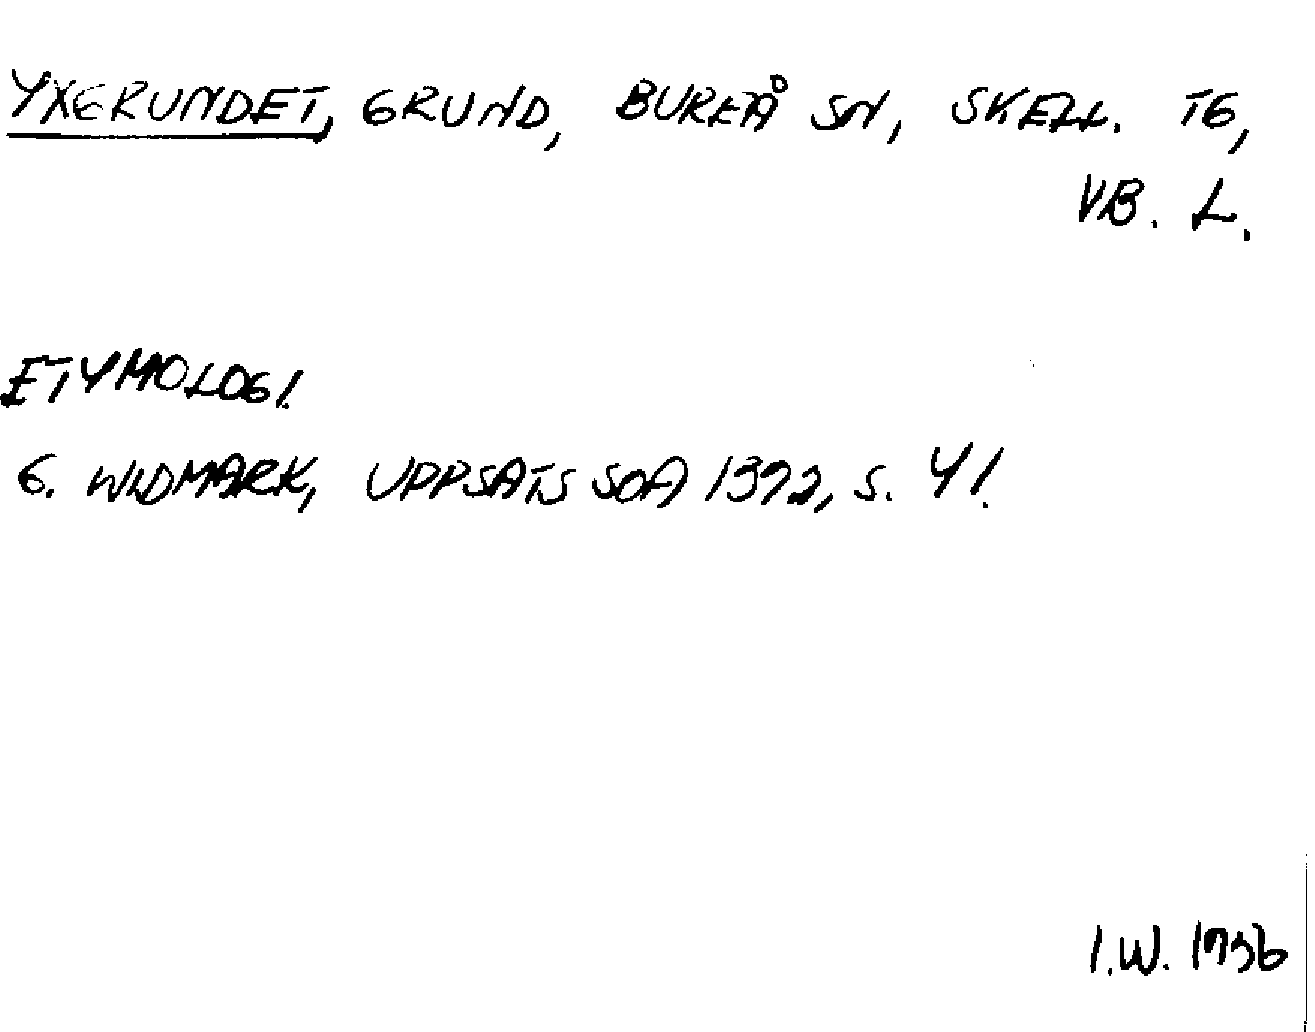 YXGRUNDET, GRUND, BUREÅ SN, SKELL. TG,
VB. L.
ETYMOLOGI.
G. WIDMARK, UPPSATS SOA 1972, S. 41.
I.W.